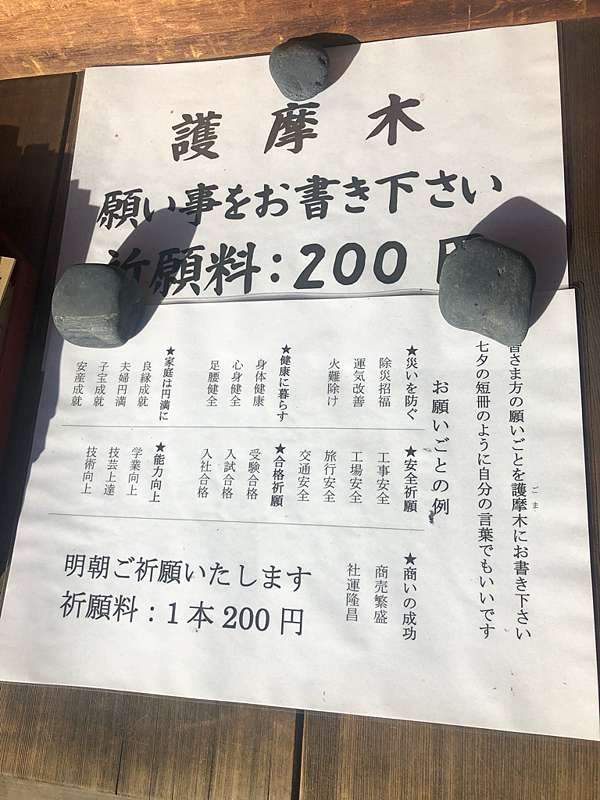 護摩木
願い事をお書き下さい
祈願料：200円
皆さま方の願いごとを護摩木にお書き下さい
ごま
七夕の短冊のように自分の言葉でもいいです
お願いごとの例
★災いを防ぐ
除災招福
運気改善
火難除け
★健康に暮らす
身体健康
心身健全
足腰健全
★家庭は円満に
良縁成就
夫婦円満
子宝成就
安産成就
★安全祈願
工事安全
工場安全
旅行安全
交通安全
★合格祈願
受験合格
入試合格
入社合格
★能力向上
学業向上
技芸上達
技術向上
★商いの成功
商売繁盛
社運隆昌
明朝ご祈願いたします
祈願料：1本200円